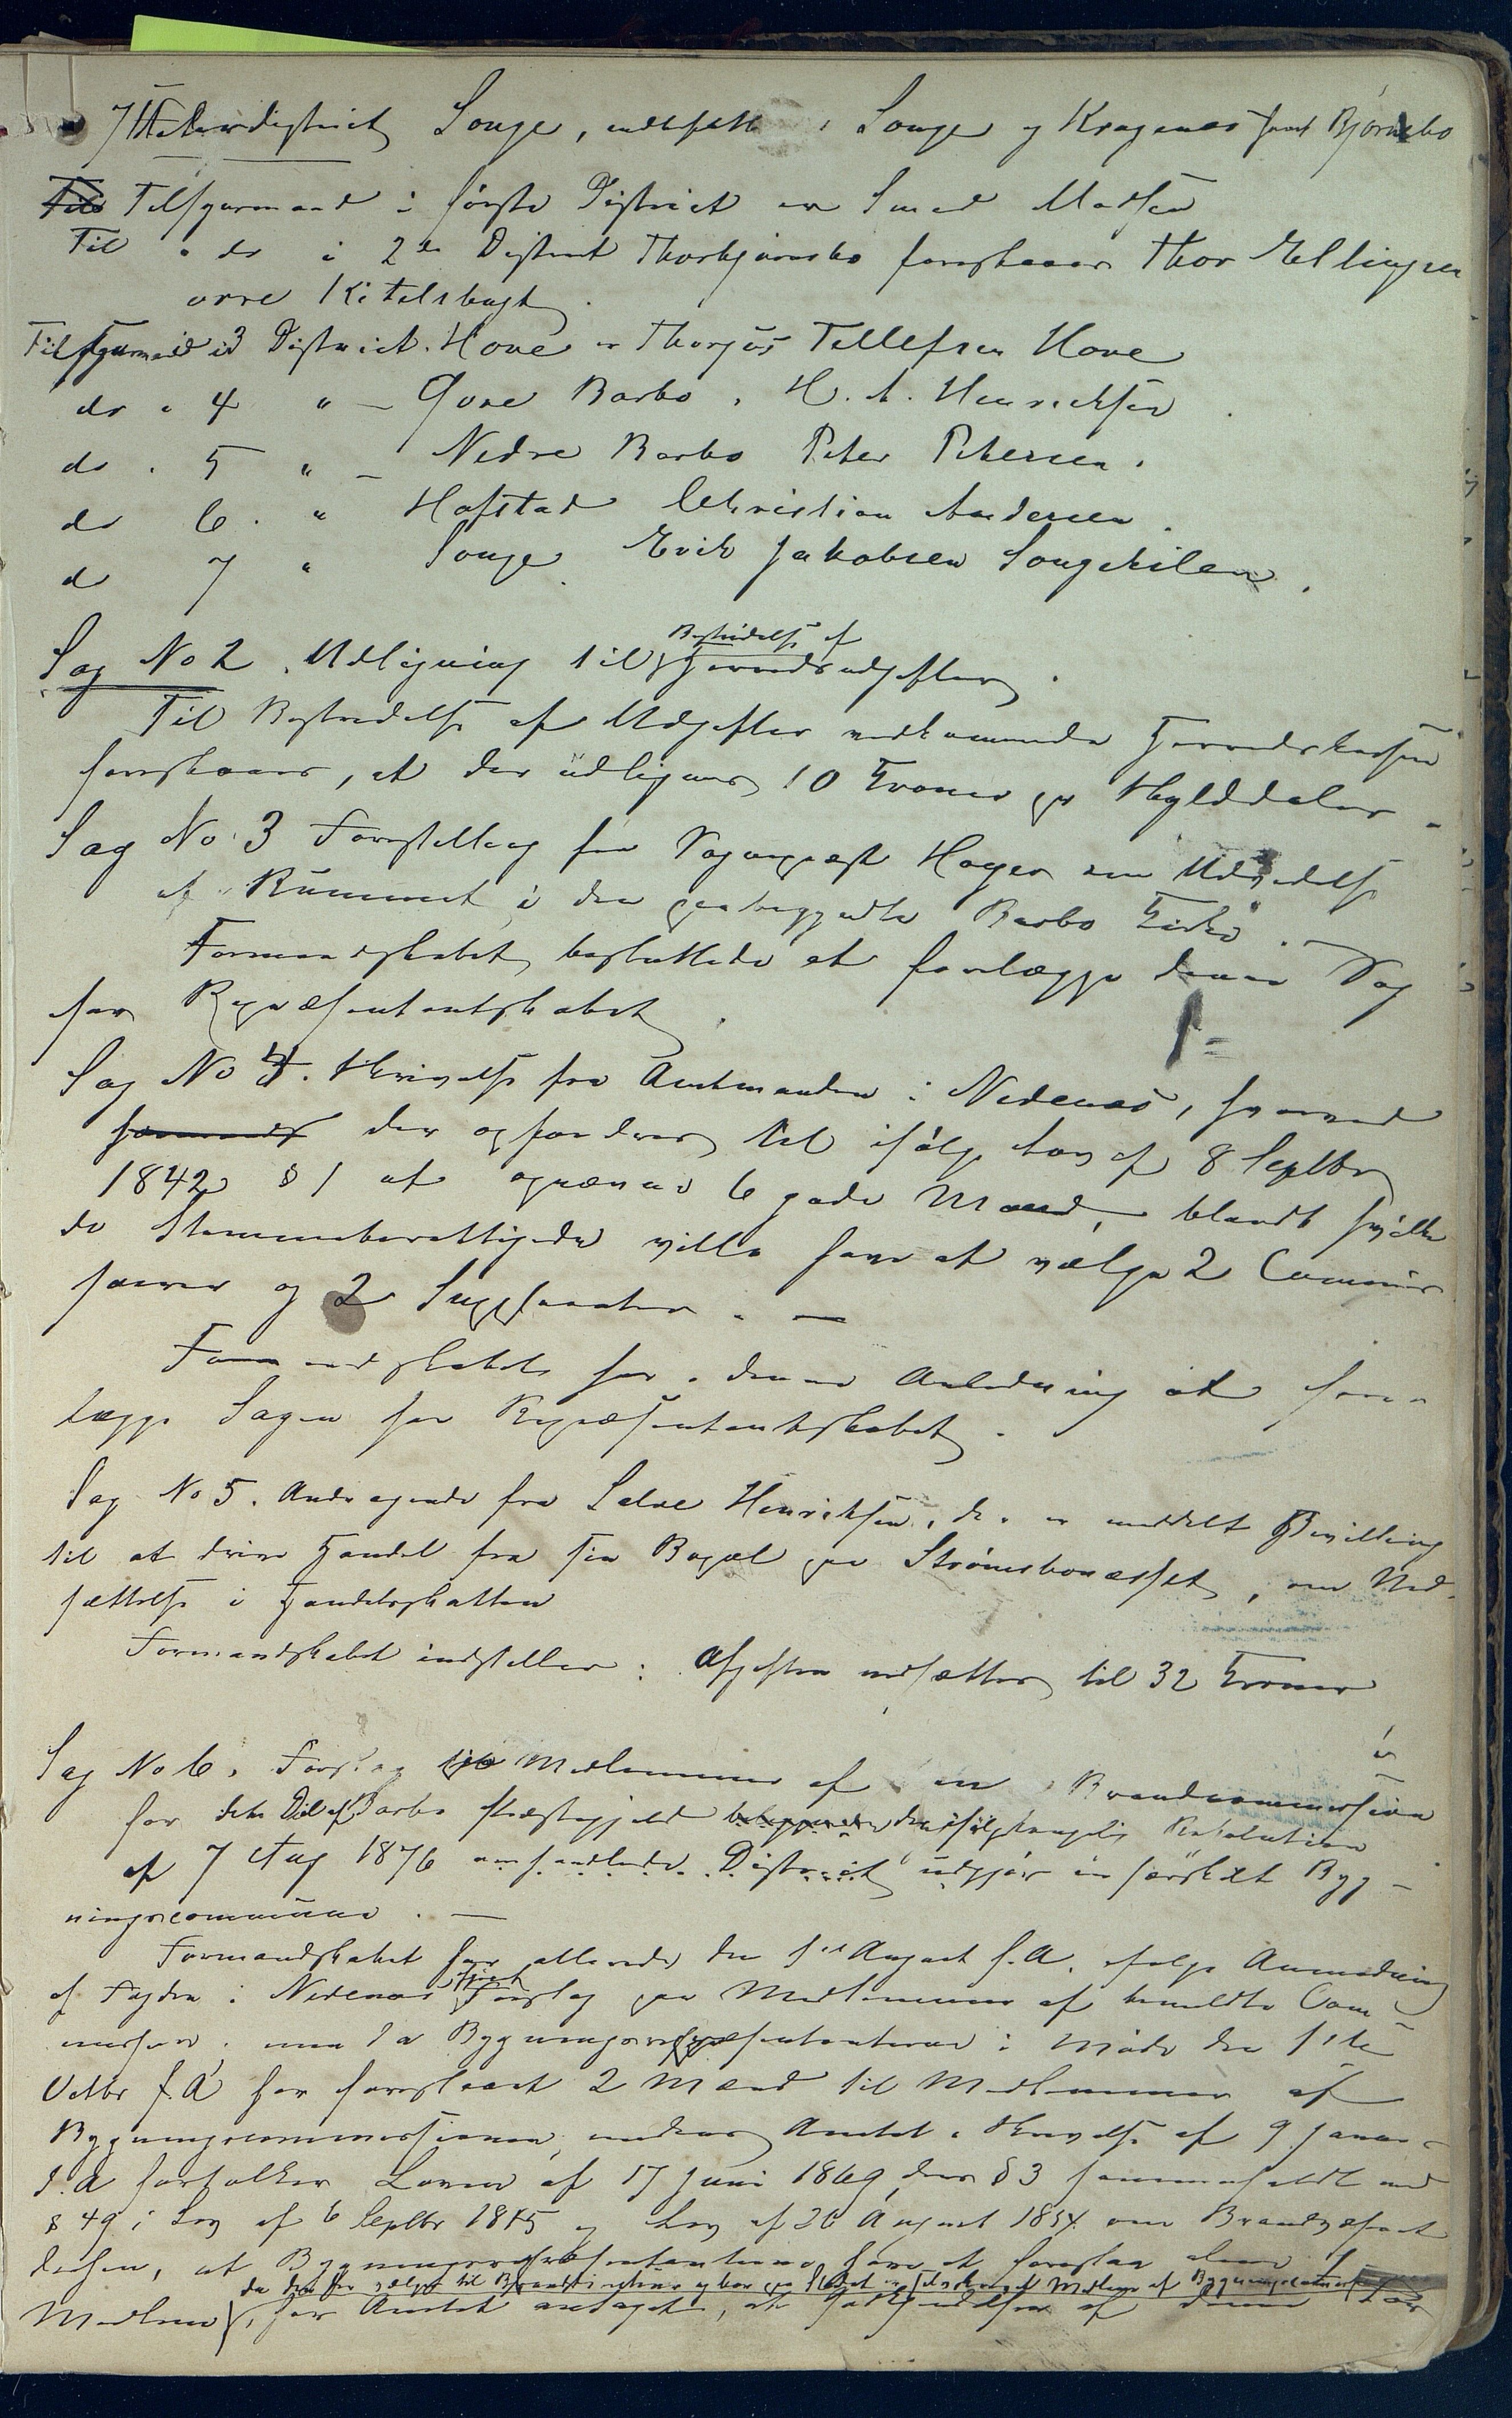 7 District Songe, indbefattet Songe og Kragenes samt Bjørnebo
Tilsynsmand i første District er Smed Madsen
Til do i 2de District Thorbjørnsbo foreslaaes Thor Ellingsen
øvre Kitelsbugt.
Tilsynsmand i 3 District Hove er Thorjus Tellefsen Hove
do i 4 " – Øvre Barbo, H. A. Henricksen.
do. 5 " – Nedre Barbo Peter Petersen.
do 6. " Hofstad Christian Andersen.
d 7 " Songe Erik Jakobsen Songekilen.
Sag No 2. Udligning til Bestridelse af Herredsudgifter.
Til Bestridelse af Udgifter vedkommende Herredskassen
foreslaaes, at der udlignes 10 Kroner pr Skylddaler.
Sag No. 3 Forestilling fra Sogneprest Hager om Udvidelse
af Rummet i den paabegyndte Barbo Kirke. –
Formandskabet besluttede at forelægge denne Sag
for Repræsentantskabet.
Sag No 4. Skrivelse fra Amtmanden i Nedenes, hvorved
der opfordres til ifølge Lov af 8 Septbr
1842 § 1 at opnævne 6 gode Mænd, blandt hvilke
de Stemmeberettigede ville have at vælge 2 Commis
særer og 2 Suppleanter. –
Formandskabet har i denne Anledning at fore-
lægge Sagen for Repræsentantskabet.
Sag No 5. Andragende fra Salve Henriksen, der er meddelt Bevilling
til at drive Handel fra sin Bopæl paa Strømsbonæsset, om Ned-
sættelse i Handelsskatten
Formandskabet indstiller: Afgiften nedsættes til 32 Kroner
Sag No 6. Forslag til Medlemmer af en Brandcommission
for den Del af Barbo Præstegjeld der ifølge kongelig Resolution
af 7 Aug 1876 omhandlede District udgjør en særskilt Byg-
ningscommune. –
Formandskabet har allerede den August f.A. ifølge Anmodning
af Fogden i Nedenes gjort Forslag paa Medlemmer af bemeldte Com-
mission; men da Bygningsrepræsentanterne i Møde den
Octbr f.A har foreslaaet 2 Mænd til Medlemmer af
Bygningscommissionen, Amtet i Skrivelse af 9 Januar
d.A fortolker Loven af 17 Juni 1869, dens § 3 sammenholdt med
§ 49 i Lov af 6 Septbr 1845 og Lov af 26 August 1854 om Brandvæsnet
derhen, at Bygningsrepræsentanterne have at foreslaa
da den før valgte til Branddirekteur og bor paa Stedet er Medlem af
Medlem, har Amtet antaget, at af denne